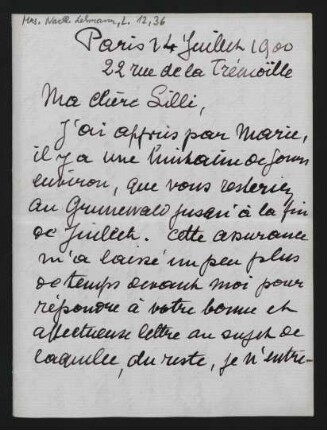 Mrs. Nachl. Lehmann, L. 12,36
Paris 24 Juillet 1900
22 rue de la Trémoïlle
Ma chère Lilli,
J'ai appris par Marie,
il y a une huitaine de jours
environ, que vous resteriez
au Grunewald jusqu'à la fin
de Juillet. Cette assurance
m'a laissé un peu plus
de temps devant moi pour
répondre à votre bonne et
affectueuse lettre au sujet de
laquelle, du reste, je n'entre-